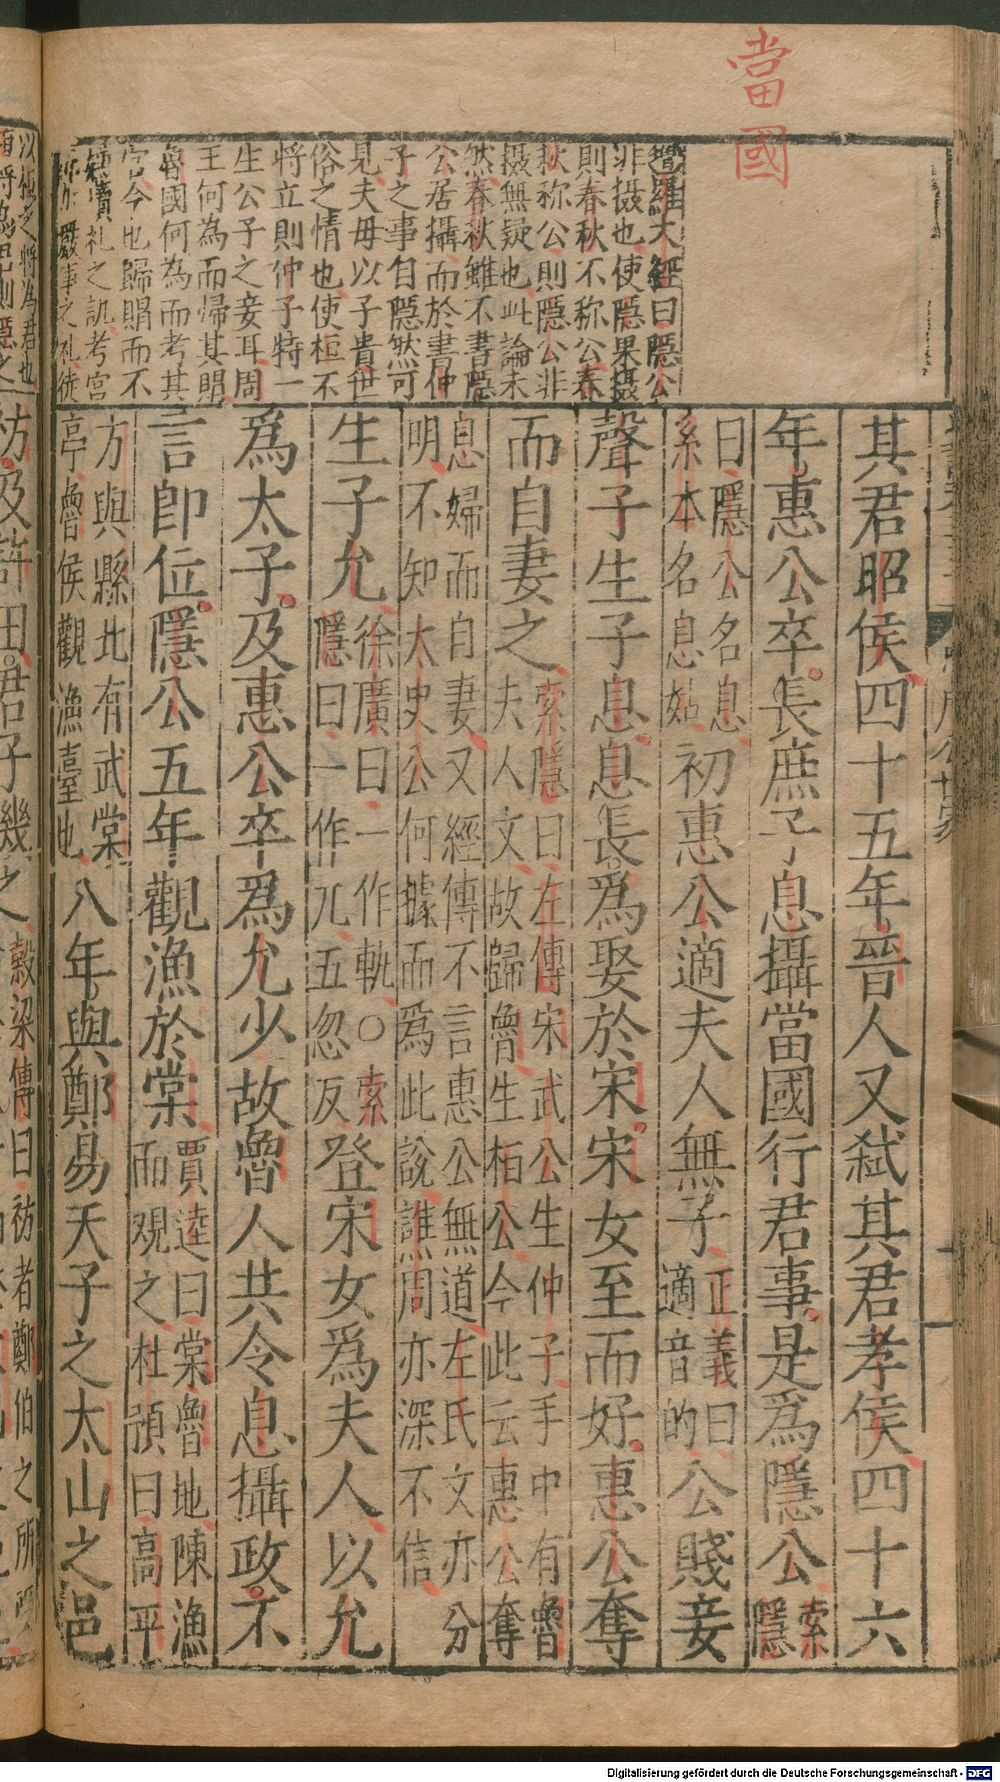 當國
增羅大經曰隱公
非摄也使隱果摄
則春秋不称公春
秋称公則隱公非
摄無疑也此論未
然春秋雖不書隱
公居攝而於書仲
子之事自隱然可
見夫母以子貴世
俗之情也使桓不
將立則仲子特一
生公子之妾耳周
王何為而歸其賵
魯國何為而考其
宮今也歸賵而不
禮之訊考宮
事之礼徒
其君昭侯四十五年晉人又弑其君孝侯四十六
年惠公卒長庶子息攝當國行君事是爲隱公索
隱
曰隱公名息
系本名息姑
初惠公適夫人無子
正義曰
適音的
公賤妾
聲子生子息息長爲娶於宋宋女至而好惠公奪
而自妻之
索隱曰左傳宋武公生仲子手中有魯
夫人文故歸魯生桓公今此云惠公奪
息婦而自妻又經傳不言惠公無道左氏文亦分
明不知太史公何據而爲此說譙周亦深不信
生子允
徐廣曰一作軌○索
隱曰一作兀五忽反
登宋女爲夫人以允
爲太子及惠公卒爲允少故魯人共令息攝政不
言即位隱公五年觀漁於棠
賈逵曰棠魯地陳漁
而观之杜預曰高平
方與縣北有武棠
亭魯侯觀漁臺也
八年與鄭易天子之太山之邑
以
將為君也
祊及許田君子幾之
穀梁傳曰祊者鄭伯之所
Digitalisierung gefördert durch die Deutsche Forschungsgemeinschaft - DFG